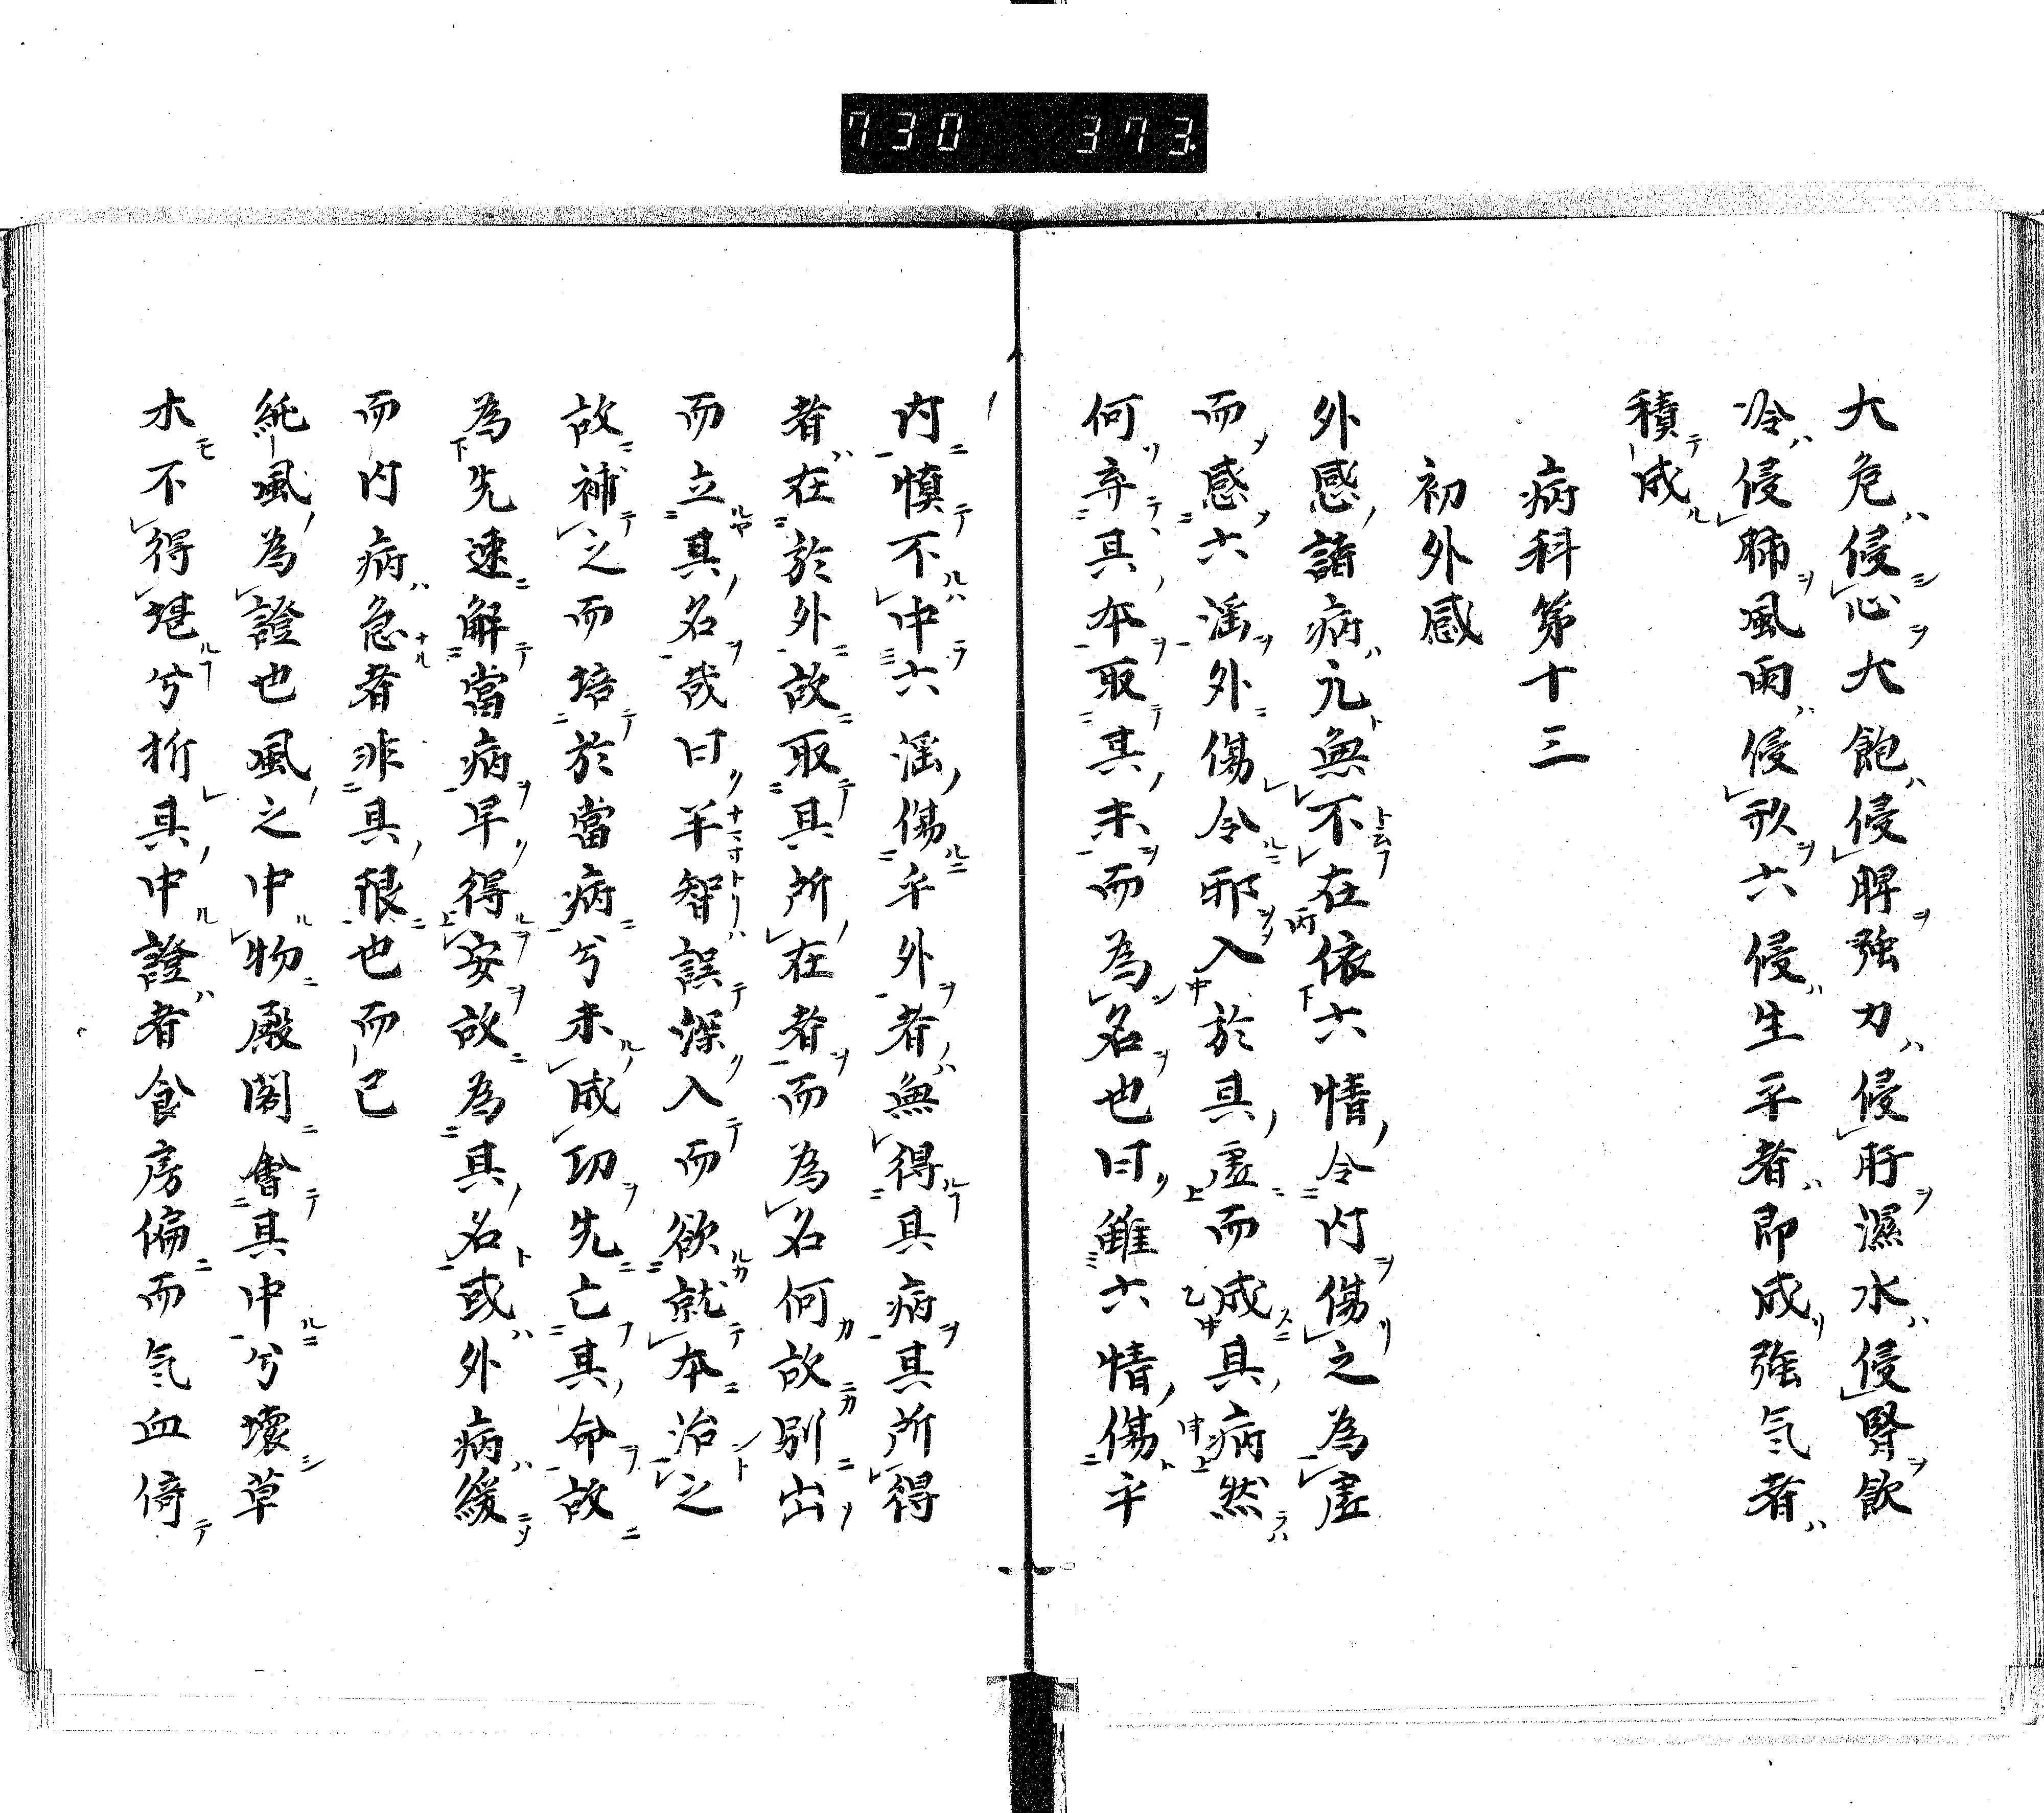 730 373.
大危侵心大飽侵脾強力侵肝濕水侵腎飲
冷侵肺風雨侵形六侵生平者即成強気者
積成
病科第十三
初外感
外感諸病元無不在依六情令内傷之為虛
而感六淫外傷令邪入於具虛而成具病然
何弃具本取其末而為名也曰雖六情傷乎
内慎不中六淫傷乎外者無得具病其所得
者在於外故取具所在者而為名何故別出
而立其名哉曰羊智誤深入而欲就本治之
故補之而培於當病兮未成功先亡其命故
為先速解當病早得安故為其名或外病緩
而内病急者非具限也而已
純風為證也風之中物殿閣會其中兮壞草
木不得堪兮折具中證者食房偏而気血倚